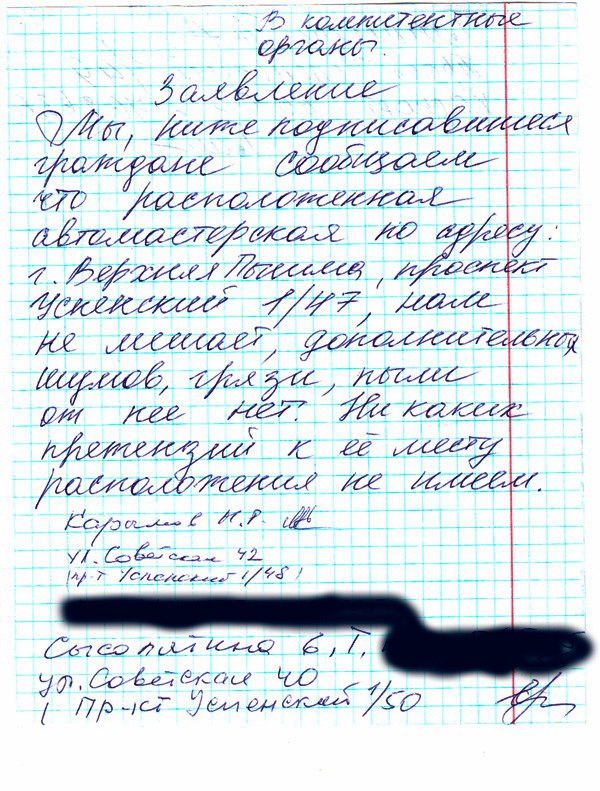 В компитентные
органы.
Заявление
Мы, ниже подписавшиеся
граждане сообщаем
что расположенная
автомастерская по адресу:
г. Верхняя Пышма, проспект
Успенский 1/47, нам
не мешает, дополнительных
шумов, грязи, пыли
от неё нет. Ни каких
претензий к её месту
расположения не имеем.
Карымов Н.Р.
ул. Советская 42
(пр-т Успенский 1/48)
Сысолятина Б. Г.
ул. Советская 40
( Пр-кт Успенский 1/50